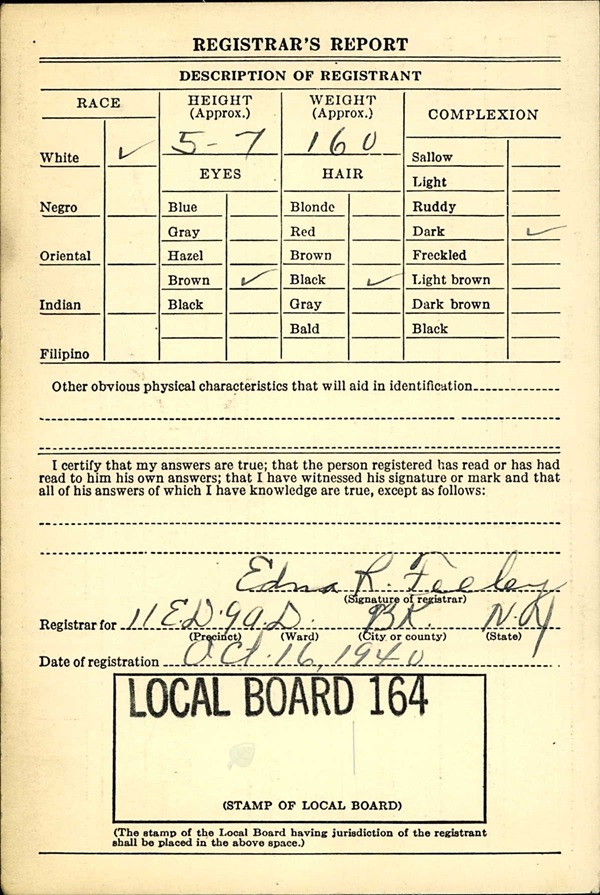 REGISTRAR'S REPORT
DESCRIPTION OF REGISTRANT
RACE
HEIGHT (Approx.)
WEIGHT (Approx.)
COMPLEXION
5-7
160
White ✓
EYES
HAIR
Sallow
Light
Negro
Blue
Blonde
Ruddy
Gray
Red
Dark ✓
Oriental
Hazel
Brown
Freckled
Brown ✓
Black ✓
Light brown
Indian
Black
Gray
Dark brown
Bald
Black
Filipino
Other obvious physical characteristics that will aid in identification
I certify that my answers are true; that the person registered has read or has had
read to him his own answers; that I have witnessed his signature or mark and that
all of his answers of which I have knowledge are true, except as follows:
Edna R. Feeley
(Signature of registrar)
Registrar for 11 E.D. 9 A.D. BK. N.Y
(Precinct) (Ward) (City or county) (State)
Date of registration Oct. 16, 1940
LOCAL BOARD 164
(STAMP OF LOCAL BOARD)
(The stamp of the Local Board having jurisdiction of the registrant
shall be placed in the above space.)